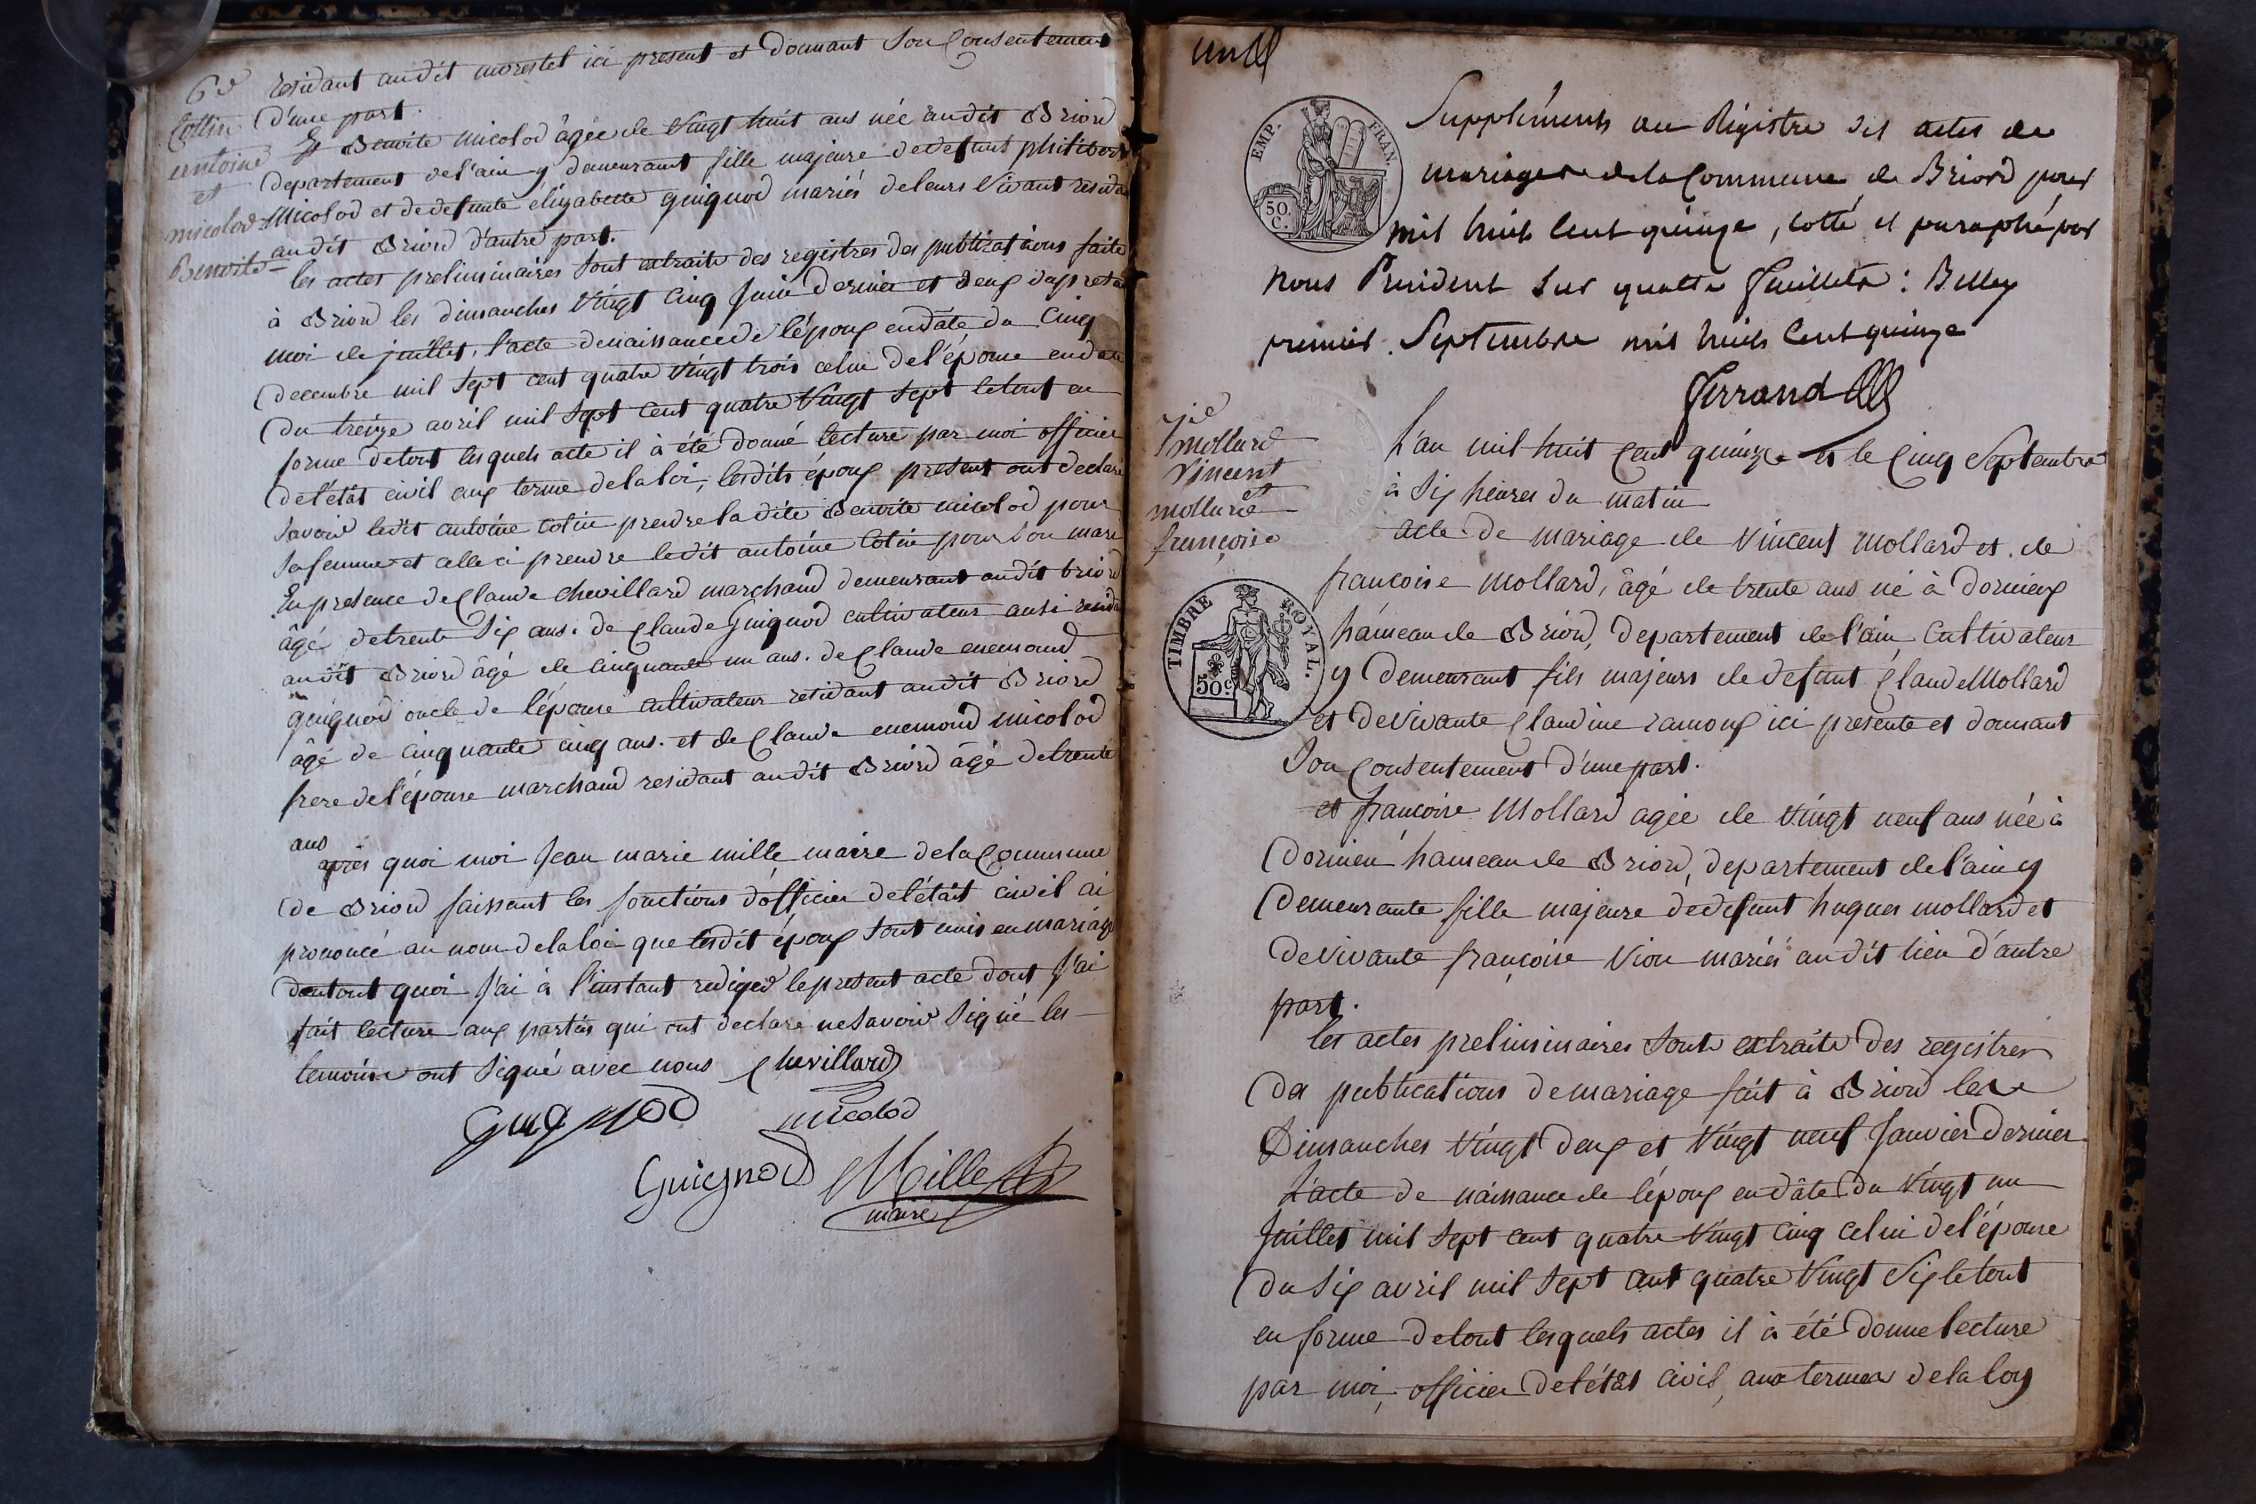 6e
Collin
antoine
et
micolod
Benoite
residant audit morestel ici present et donnant son Consentement
d'une part.
Et Benoite micolod âgée de vingt huit ans née audit Briord
departement de l'ain y demeurant fille majeure de defunt philibert
Micolod et de defunte élizabette guignod mariés de leurs vivant resida
audit Briord d'autre part.
les actes preliminaires sont extraite des registres des publications faite
à Briord les dimanches vingt cinq juin dernier et deux du present
moi de juillet, l'acte de naissance de l'époux en date du cinq
decembre mil sept cent quatre vingt trois celui de l'épouse en date
du treize avril mil sept cent quatre vingt sept le tout en
forme de tout lesquels acte il à été donné lecture par moi officier
de l'état civil aux terme de la loi, lesdits époux present ont declaré
savoir ledit antoine Colin prendre la dite Benoite micolod pour
sa femme et celle ci prendre ledit antoine Colin pour son mare
En presence de Claude chevillard marchand demeurant audit briord
âgé de trente six ans. de Claude Guignod cultivateur ausi resida
audit Briord âgé de cinquante un ans. de Claude enemond
guignod oncle de l'épouse cultivateur residant audit Briord
âgé de cinquante cinq ans. et de Claude enemond micolod
frere de l'épouse marchand residant audit Briord âgé de trente
ans
après quoi moi Jean marie mille maire de la Commune
de Briord faissant les fonctions d'officier de l'état civil ai
prononcé au nom de la loi que lesdit époux sont unis en mariage
de tout quoi j'ai à l'instant rediged le present acte dont j'ai
fait lecture aux partis qui ont declare ne savoir signé les
temoins ont signé avec nous Chevillard
Guignod micolod
Guignod Mille
maire
un
EMP. FRAN.
50. C.
Suppléments au Régistre des actes de
mariages de la Commune de Briord pour
mil huit Cent quinze, cotté et paraphé par
nous Président sur quatre feuillets : Belley
premier Septembre mil huit Cent quinze
Ferrand
7ie
mollard
Vincent
et
mollard
françoise
TIMBRE ROYAL.
50c
L'an mil huit Cent quinze et le Cinq Septembre
à six heures du matin
acte de mariage de Vincent Mollard et de
francoise Mollard, âgé de trente ans né à Dornieux
hameau de Briord, departement de l'ain, Cultivateur
y demeurant fils majeurs de defunt Claude Mollard
et de vivante Claudine ramoux ici presente et donnant
son Consentement d'une part.
et francoise Mollard agée de vingt neuf ans née à
Dornieu hameau de Briord, departement de l'ain y
demeurante fille majeure de defunt hugues mollard et
de vivante françoise Vion mariés audit lieu d'autre
part.
les actes preliminaires sont extraite des registres
des publications de mariage fait à Briord les
Dimanches vingt deux et vingt neuf Janvier dernier
L'acte de naissance de l'époux en dâte du vingt un
Juillet mil sept cent quatre vingt cinq celui de l'épouse
du six avril mil sept cent quatre vingt six le tout
en forme de tout lesquels actes il à été donne lecture
par moi, officier de l'état civil, aux termes de la loy